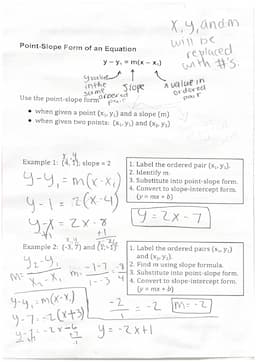 x, y, and m
will be
replaced
with #'s.
Point-Slope Form of an Equation
y − y₁ = m(x − x₁)
y value
in the
same
ordered
pair
Slope
x value in
ordered
pair
Use the point-slope form
• when given a point (x₁, y₁) and a slope (m)
• when given two points: (x₁, y₁) and (x₂, y₂)
Example 1: (4, 1), slope = 2
y-y₁=m(x-x₁)
y-1=2(x-4)
y-1=2x-8
+1
1. Label the ordered pair (x₁, y₁).
2. Identify m.
3. Substitute into point-slope form.
4. Convert to slope-intercept form.
(y = mx + b)
y=2x-7
Example 2: (-3, 7) and (1, -1)
y₂-y₁
m= x₂-x₁
m= -1-7
1--3
-8
4
1. Label the ordered pairs (x₁, y₁)
and (x₂, y₂).
2. Find m using slope formula.
3. Substitute into point-slope form.
4. Convert to slope-intercept form.
(y = mx + b)
y-y₁=m(x-x₁)
y-7=-2(x+3)
y-7=-2x-6
+7
-2
1
=-2
m=-2
y=-2x+1